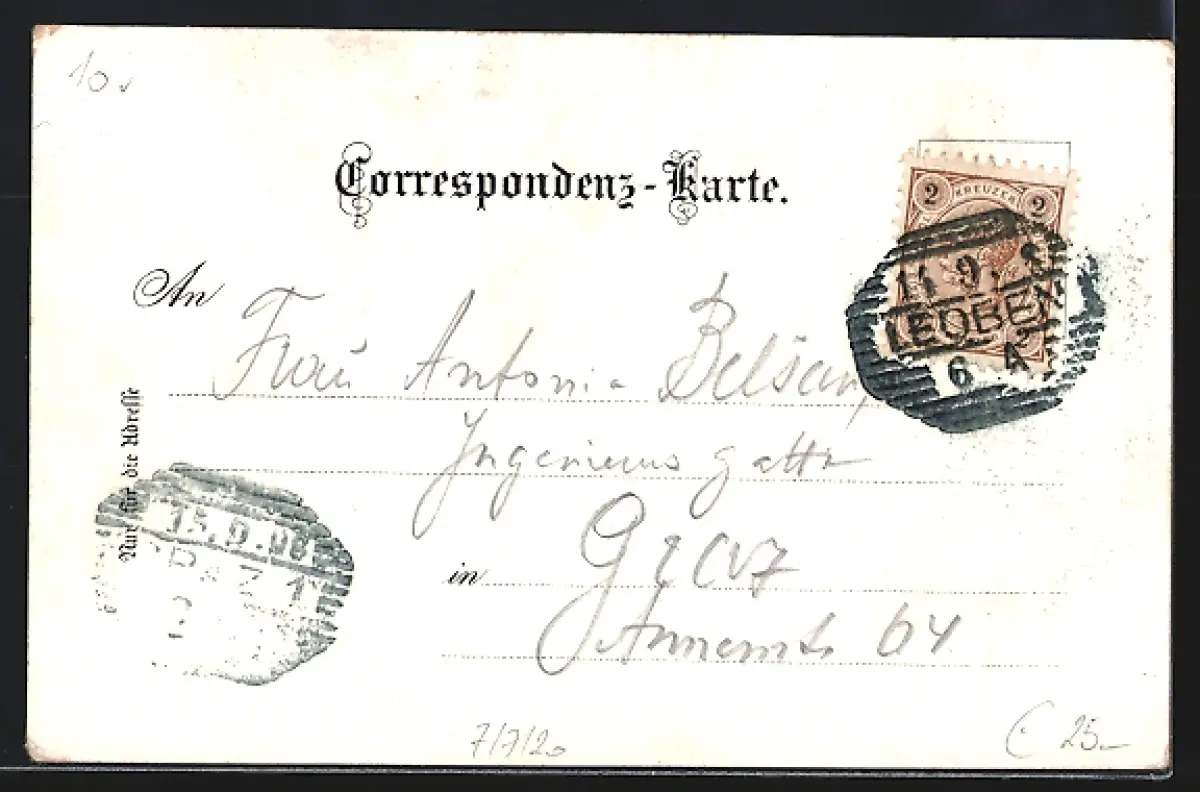 10
Correspondenz-Karte.
2 KREUZER 2
14 9.
LEOBEN
6 A
An
Frau Antonia
Ingenieurs gattin
in Graz
64
Nur für die Adresse
15.9.98
GRAZ 1
7/7/20
25